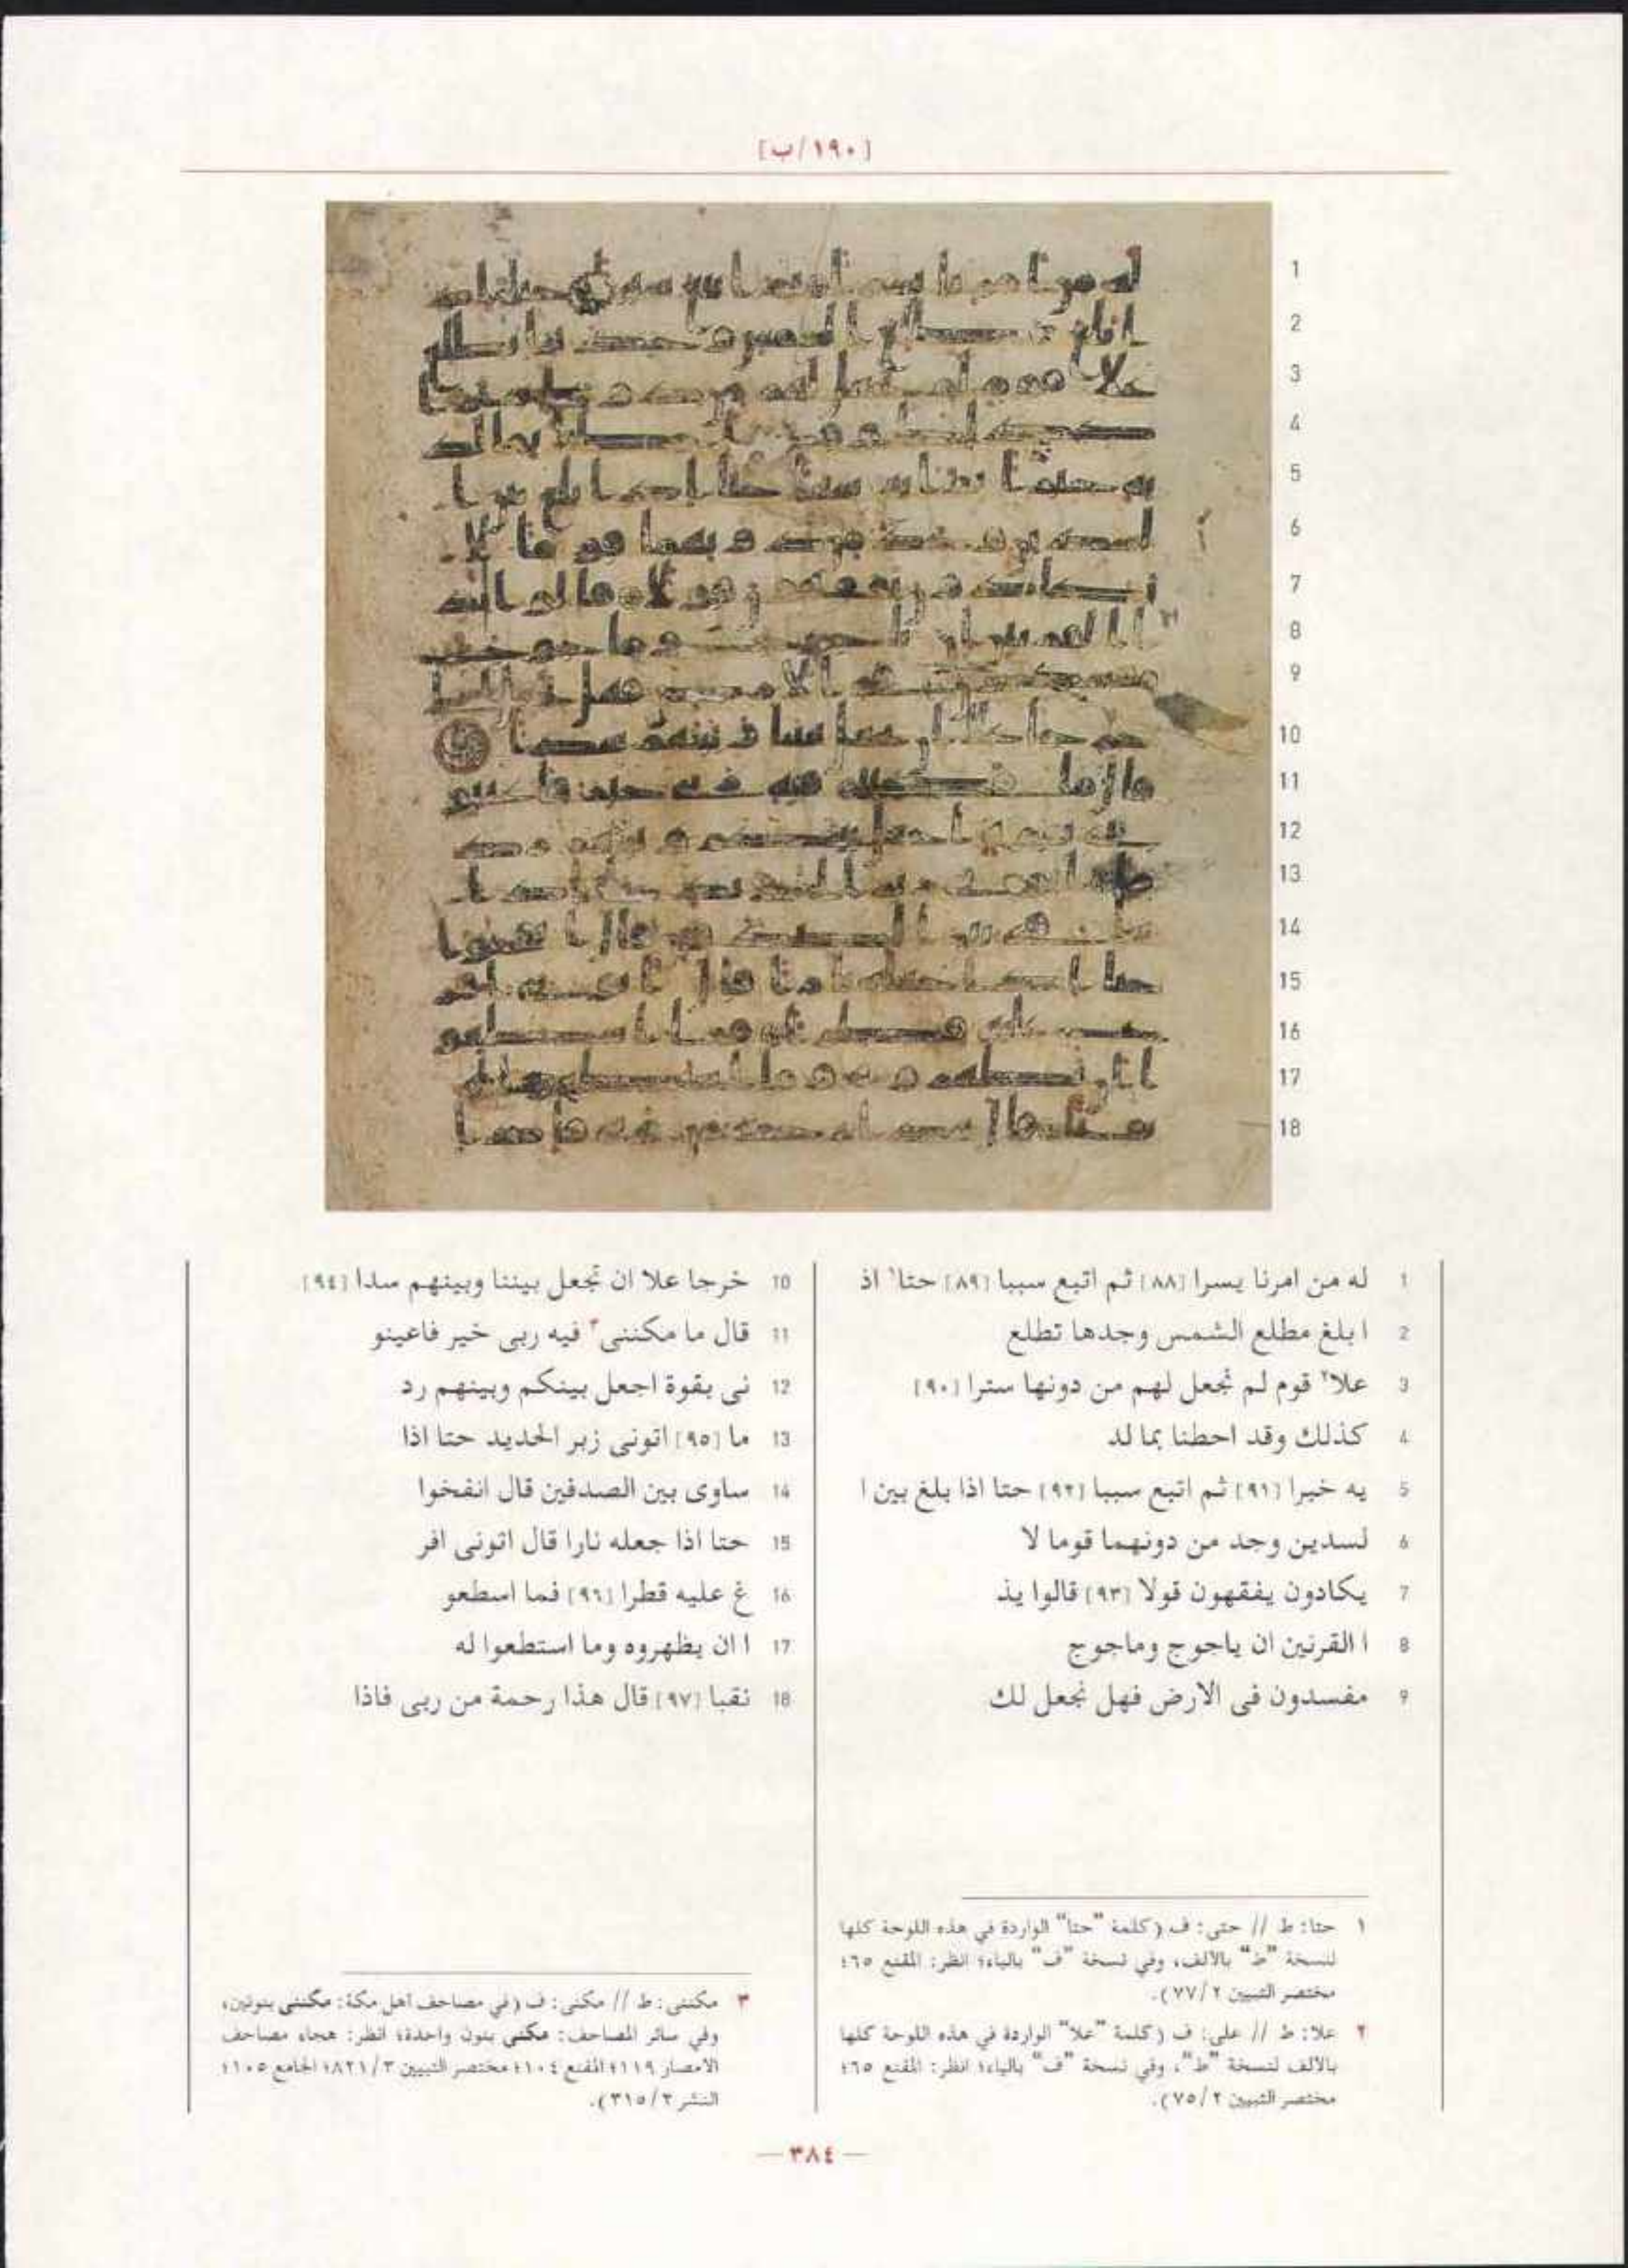 [١٩٠/ب]
1 له من امرنا يسرا [٨٨] ثم اتبع سببا [٨٩] حتا١ اذ
2 ا بلغ مطلع الشمس وجدها تطلع
3 علا٢ قوم لم نجعل لهم من دونها سترا [٩٠]
4 كذلك وقد احطنا بما لد
5 يه خبرا [٩١] ثم اتبع سببا [٩٢] حتا اذا بلغ بين ا
6 لسدين وجد من دونهما قوما لا
7 يكادون يفقهون قولا [٩٣] قالوا يذ
8 ا القرنين ان ياجوج وماجوج
9 مفسدون فى الارض فهل نجعل لك
10 خرجا علا ان تجعل بيننا وبينهم سدا [٩٤]
11 قال ما مكننى٣ فيه ربى خير فاعينو
12 نى بقوة اجعل بينكم وبينهم رد
13 ما [٩٥] اتونى زبر الحديد حتا اذا
14 ساوى بين الصدفين قال انفخوا
15 حتا اذا جعله نارا قال اتونى افر
16 غ عليه قطرا [٩٦] فما اسطعو
17 ا ان يظهروه وما استطعوا له
18 نقبا [٩٧] قال هذا رحمة من ربى فاذا
١ حتا: ط // حتى: ف (كلمة "حتا" الواردة في هذه اللوحة كلها
لنسخة "ط" بالألف، وفي نسخة "ف" بالياء؛ انظر: المقنع ٦٥؛
مختصر التبيين ٧٧/٢).
٢ علا: ط // على: ف (كلمة "علا" الواردة في هذه اللوحة كلها
بالألف لنسخة "ط"، وفي نسخة "ف" بالياء؛ انظر: المقنع ٦٥؛
مختصر التبيين ٧٥/٢).
٣ مكننى: ط // مكنى: ف (في مصاحف أهل مكة: مكننى بنونين،
وفي سائر المصاحف: مكنى بنون واحدة؛ انظر: هجاء مصاحف
الأمصار ١١٩؛ المقنع ١٠٤؛ مختصر التبيين ٨٢١/٣؛ الجامع ١٠٥؛
النشر ٣١٥/٢).
— ٣٨٤ —